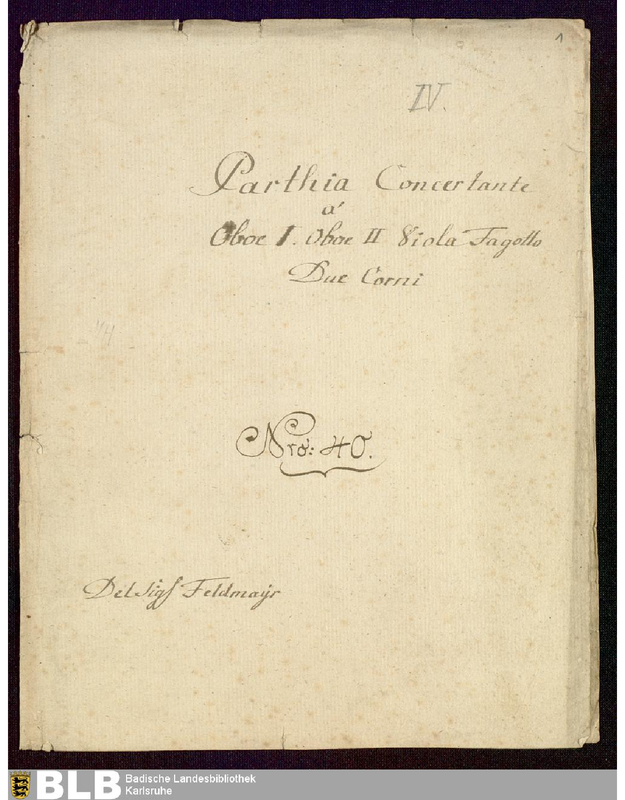 1
IV.
Parthia Concertante
a'
Oboe I. Oboe II Viola Fagotto
Due Corni
Nro: 40.
Del Sigʳ Feldmayr
BLB Badische Landesbibliothek
Karlsruhe